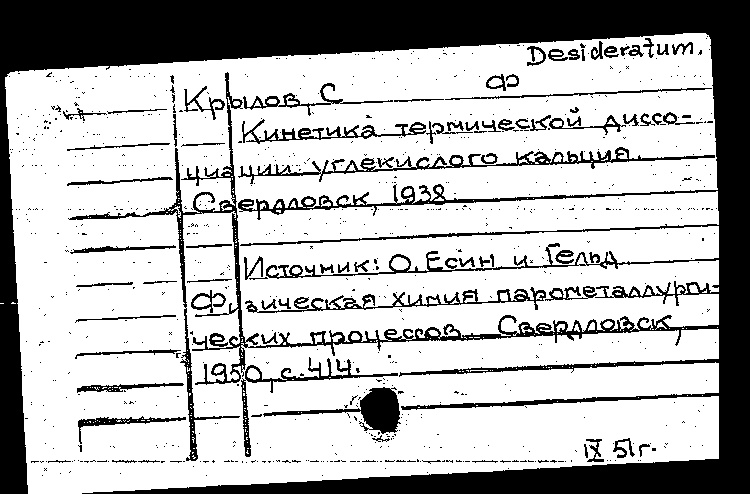 Desideratum.
Ф
Крылов, С
Кинетика термической диссо-
циации углекислого кальция.
Свердловск, 1938.
Источник: О. Есин и Гельд
Физическая химия парометаллурги-
ческих процессов. Свердловск,
1950, с. 414.
IX 51 г.